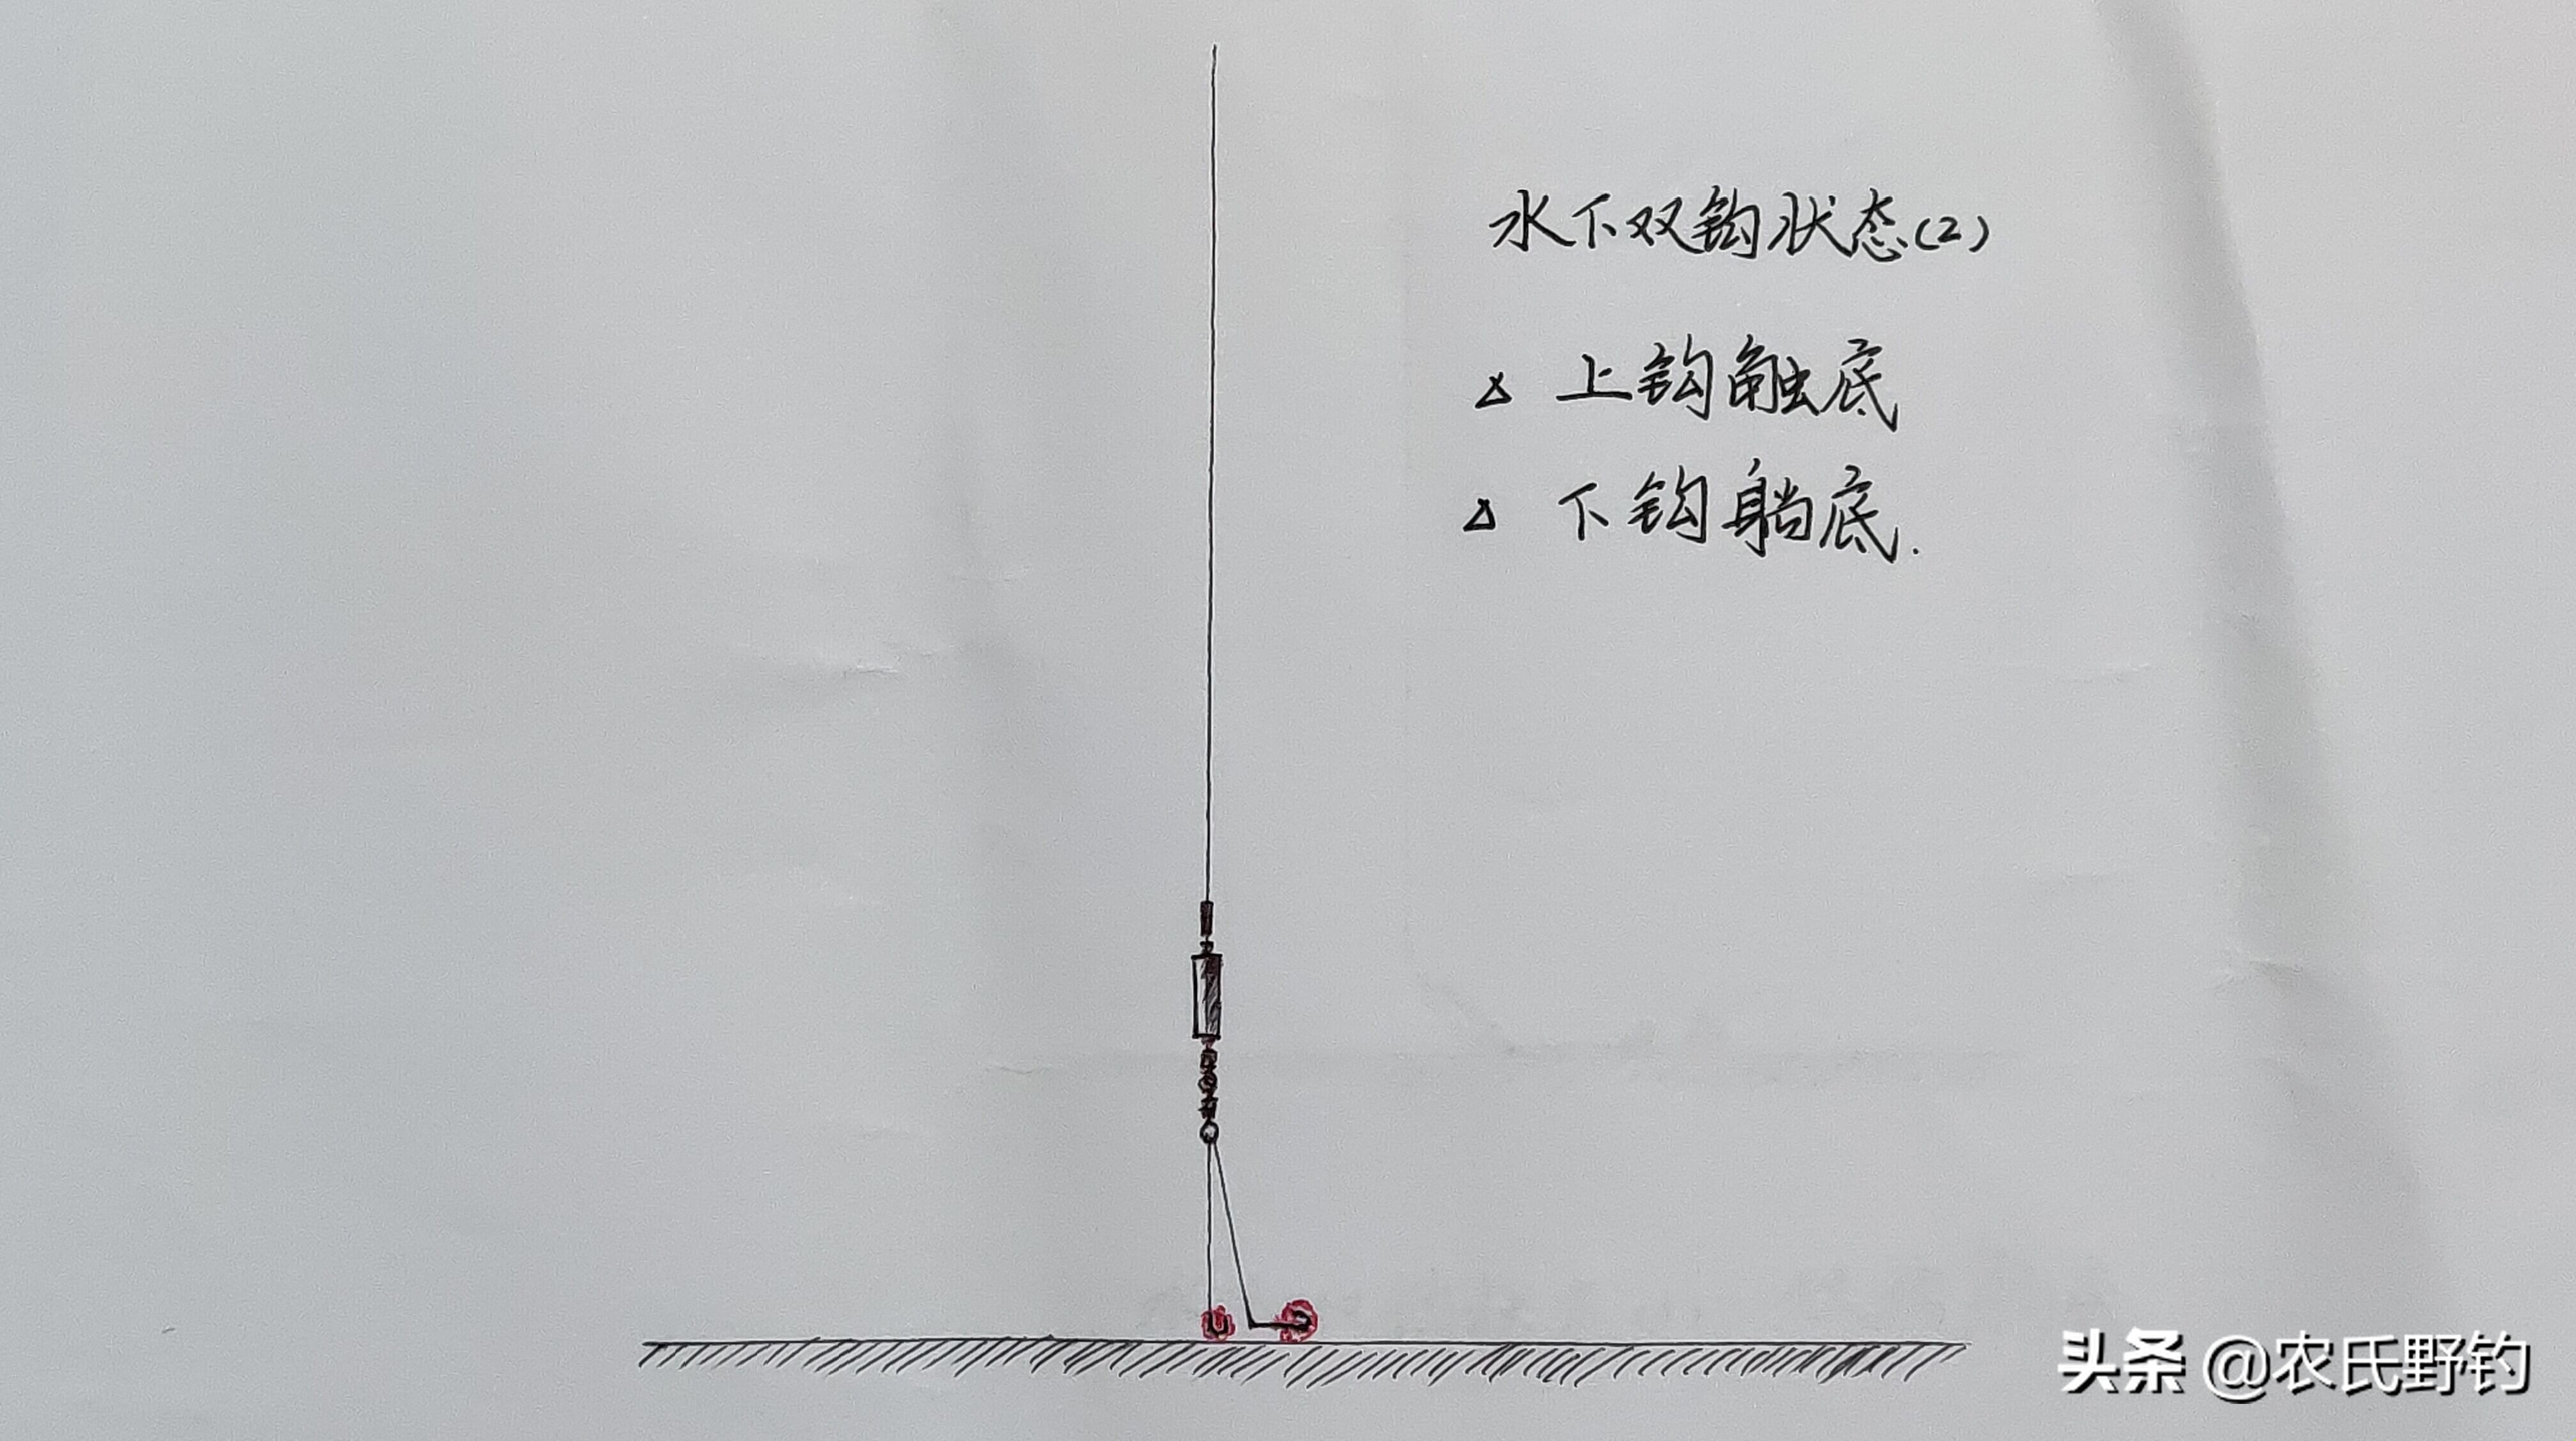 水下双钩状态(2)
△ 上钩触底
△ 下钩躺底.
头条 @农氏野钓